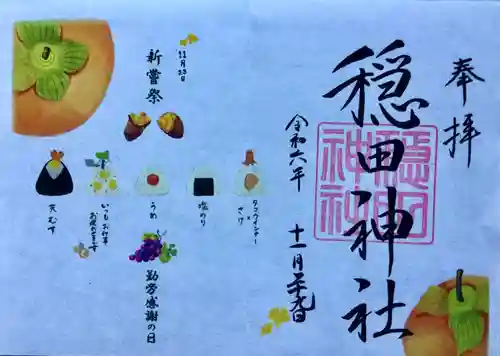 奉拝
穏田神社
穏田
神社
令和六年
十一月二十九日
11月23日
新嘗祭
タコウインナー
さけ
塩のり
うめ
いつもお仕事
お疲れさまです
天むす
勤労感謝の日